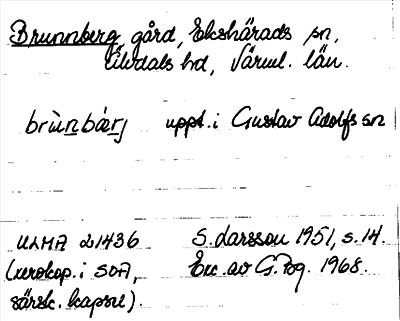 Brunnberg gård, Ekshärads sn,
Älvdals hd, Värml. län.
brùn̲bær̲j uppt. i Gustav Adolfs sn
ULMA 21436 S. Larsson 1951, s. 14.
(xerokop. i SOA, Exc. av G. Pog. 1968.
särsk. kapsel).